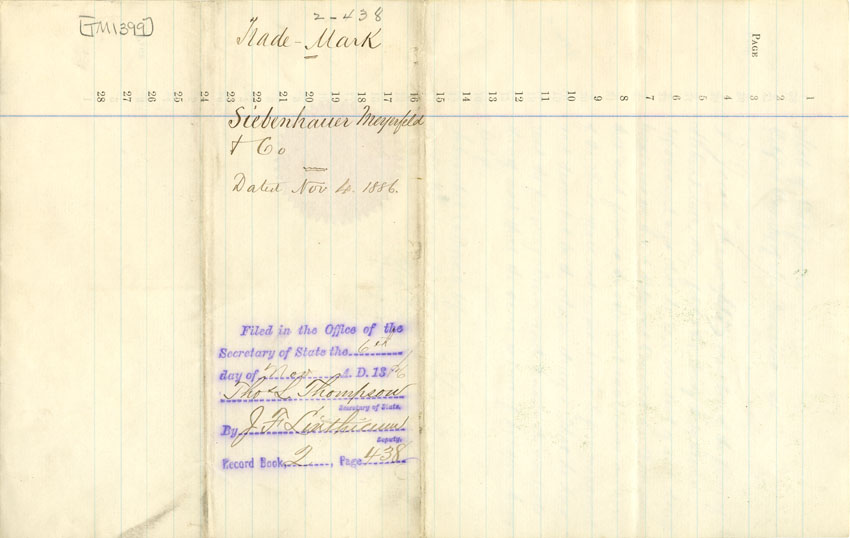 [TM1399]
2-438
Trade-Mark
PAGE
28 27 26 25 24 23 22 21 20 19 18 17 16 15 14 13 12 11 10 9 8 7 6 5 4 3 2 1
Siebenhauer Meyerfeld
& Co
Dated Nov 4. 1886.
Filed in the Office of the
Secretary of State the 6th
day of Nov A. D. 1886
Thos L. Thompson
Secretary of State.
By J F Linthicum
Deputy.
Record Book, 2, Page 438